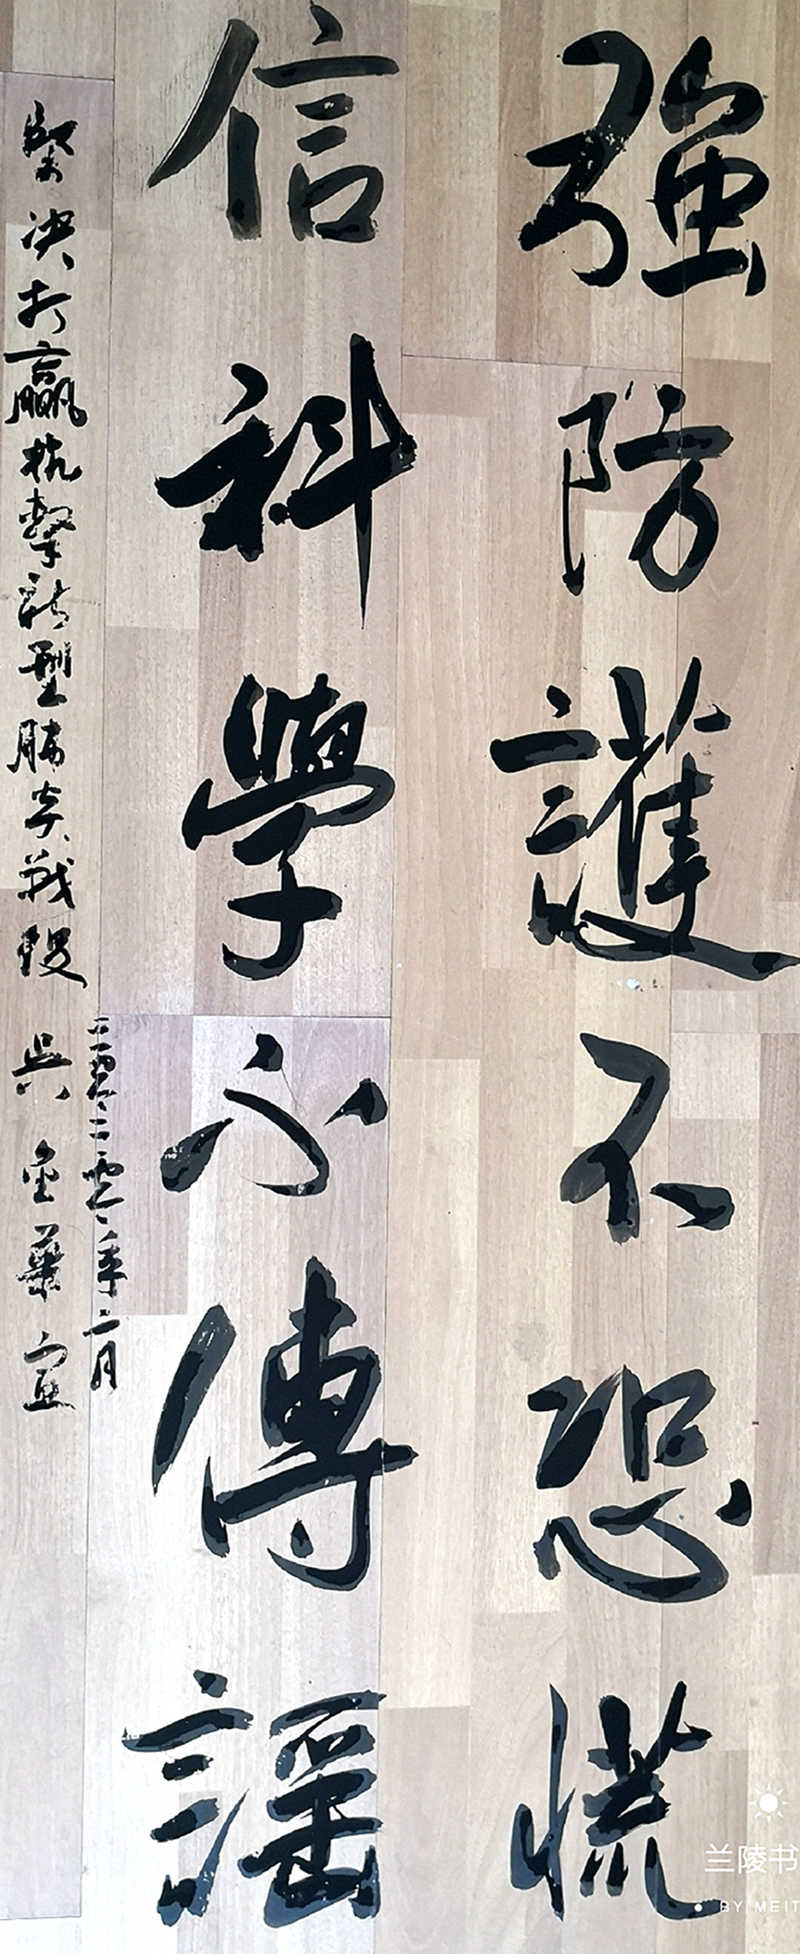 強防護不恐慌
信科學不傳謠
二零二零年二月
堅決打贏抗擊新型肺炎戰役 吳金
兰陵书
BY MEIT